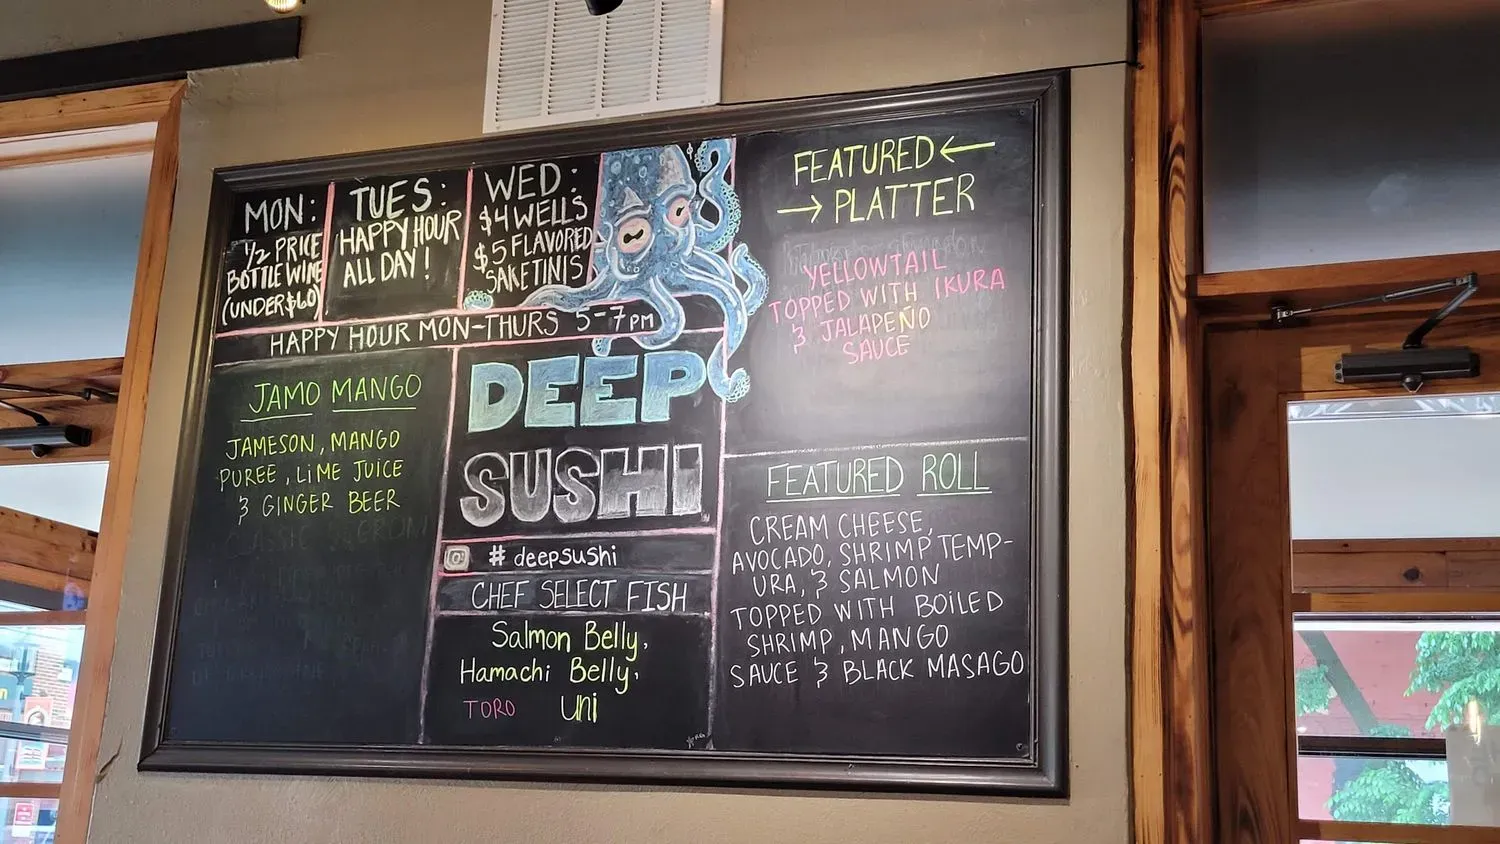 MON:
1/2 PRICE
BOTTLE WINE
(UNDER $60)
TUES:
HAPPY HOUR
ALL DAY!
WED:
$4 WELLS
$5 FLAVORED
SAKETINIS
HAPPY HOUR MON-THURS 5-7PM
JAMO MANGO
JAMESON, MANGO
PUREE, LIME JUICE
& GINGER BEER
DEEP
SUSHI
# deepsushi
CHEF SELECT FISH
Salmon Belly,
Hamachi Belly,
TORO Uni
FEATURED ←
→ PLATTER
YELLOWTAIL
TOPPED WITH IKURA
& JALAPEÑO
SAUCE
FEATURED ROLL
CREAM CHEESE,
AVOCADO, SHRIMP TEMP-
URA, & SALMON
TOPPED WITH BOILED
SHRIMP, MANGO
SAUCE & BLACK MASAGO